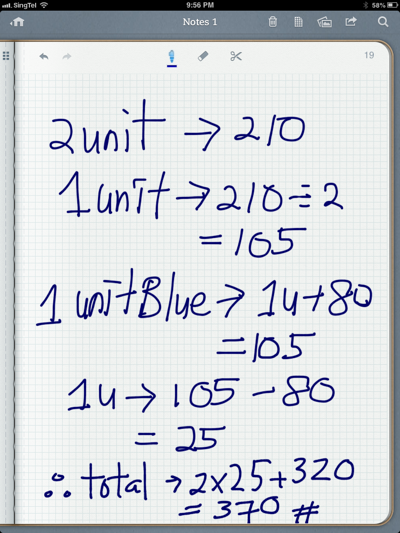 SingTel 9:56 PM 58%
Notes 1
19
2unit → 210
1unit → 210÷2
= 105
1 unitBlue → 1u+80
= 105
1u → 105 − 80
= 25
∴ total → 2×25+320
= 370 #